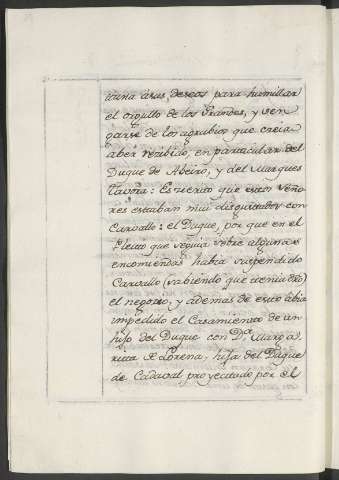 tuna à sus deseos para humillar
el orgullo de los Grandes, y ven
garse de los agrabios que creia
aber recibido, en particular del
Duque de Abeiro, y del Marques
Tavora: Es cierto que estos Seño
res estaban mui disgustados con
Carvallo: el Duque, por que en el
Pleito que seguia sobre algunas
encomiendas habia suspendido
Carvallo (sabiendo que tenia dro)
el negocio, y ademas de esto abia
impedido el Casamiento de un
hijo del Duque con D.ª Marga
ritta de Lorena, hija del Duque
de Cadaval proyectado por el